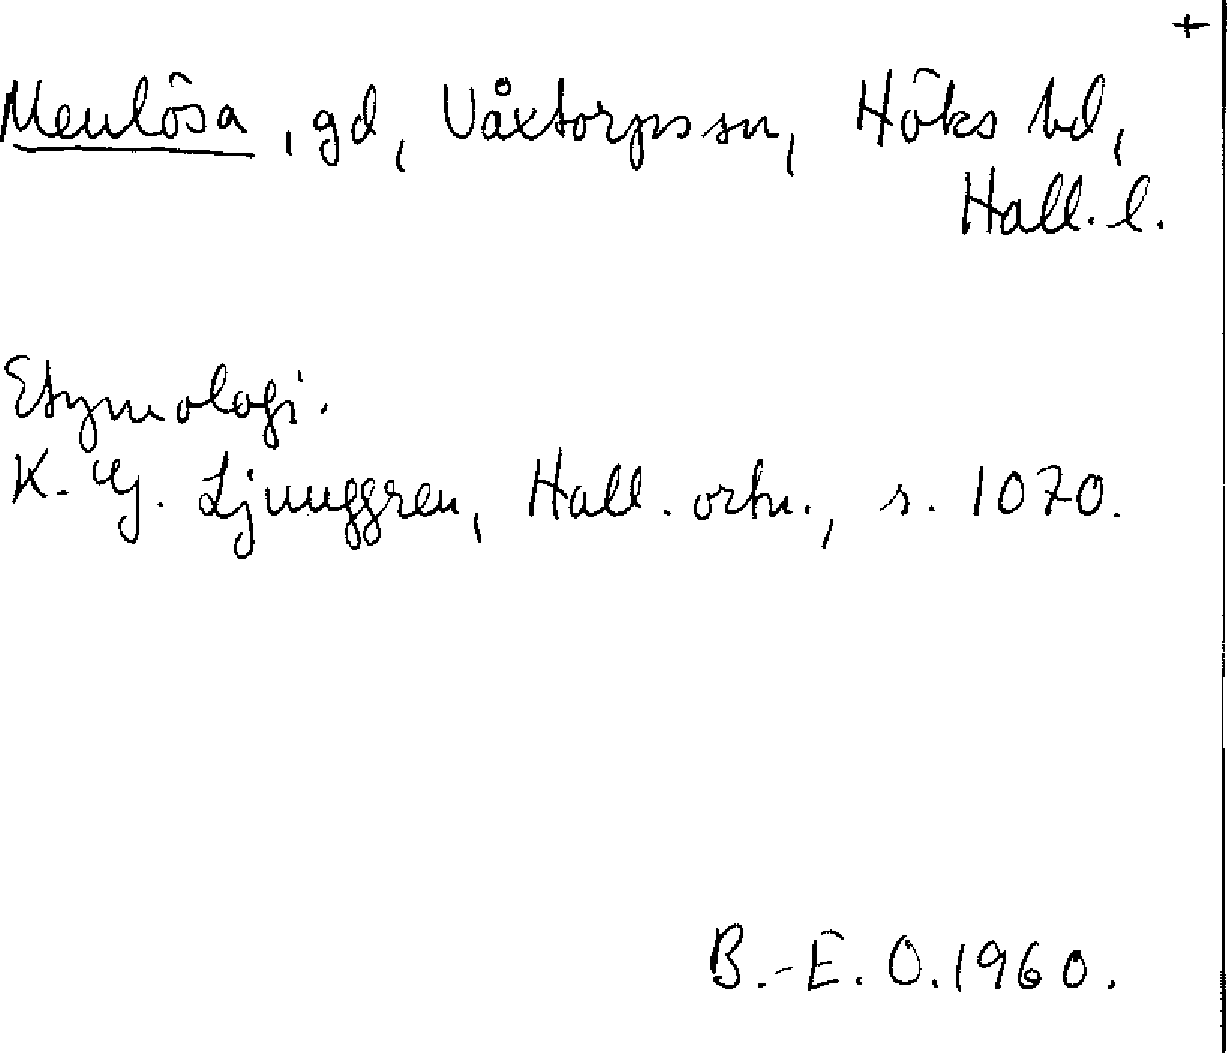 +
Menlösa, gd, Våxtorps sn, Höks hd,
Hall. l.
Etymologi.
K. G. Ljunggren, Hall. ortn., s. 1070.
B.-E. O. 1960.